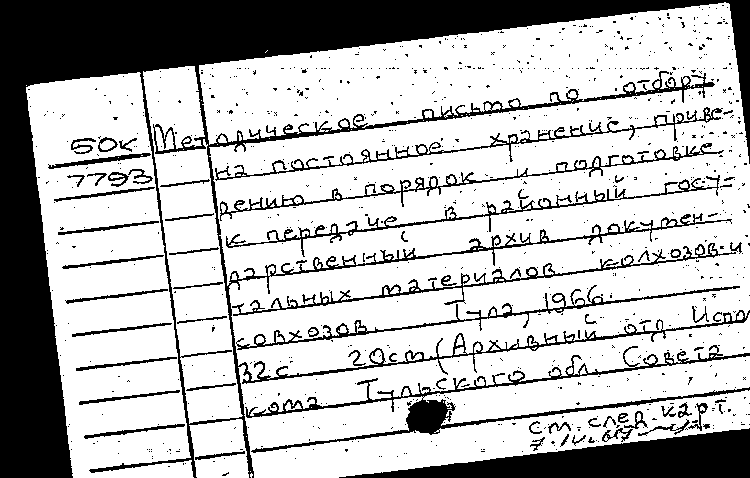 50к Методическое письмо по отбору
7793 на постоянное хранение, приве-
дению в порядок и подготовке
к передаче в районный госу-
дарственный архив докумен-
тальных материалов колхозов и
совхозов. Тула, 1966.
32с. 20см. (Архивный отд Испол
кома Тульского обл. Совета
см. след. карт.